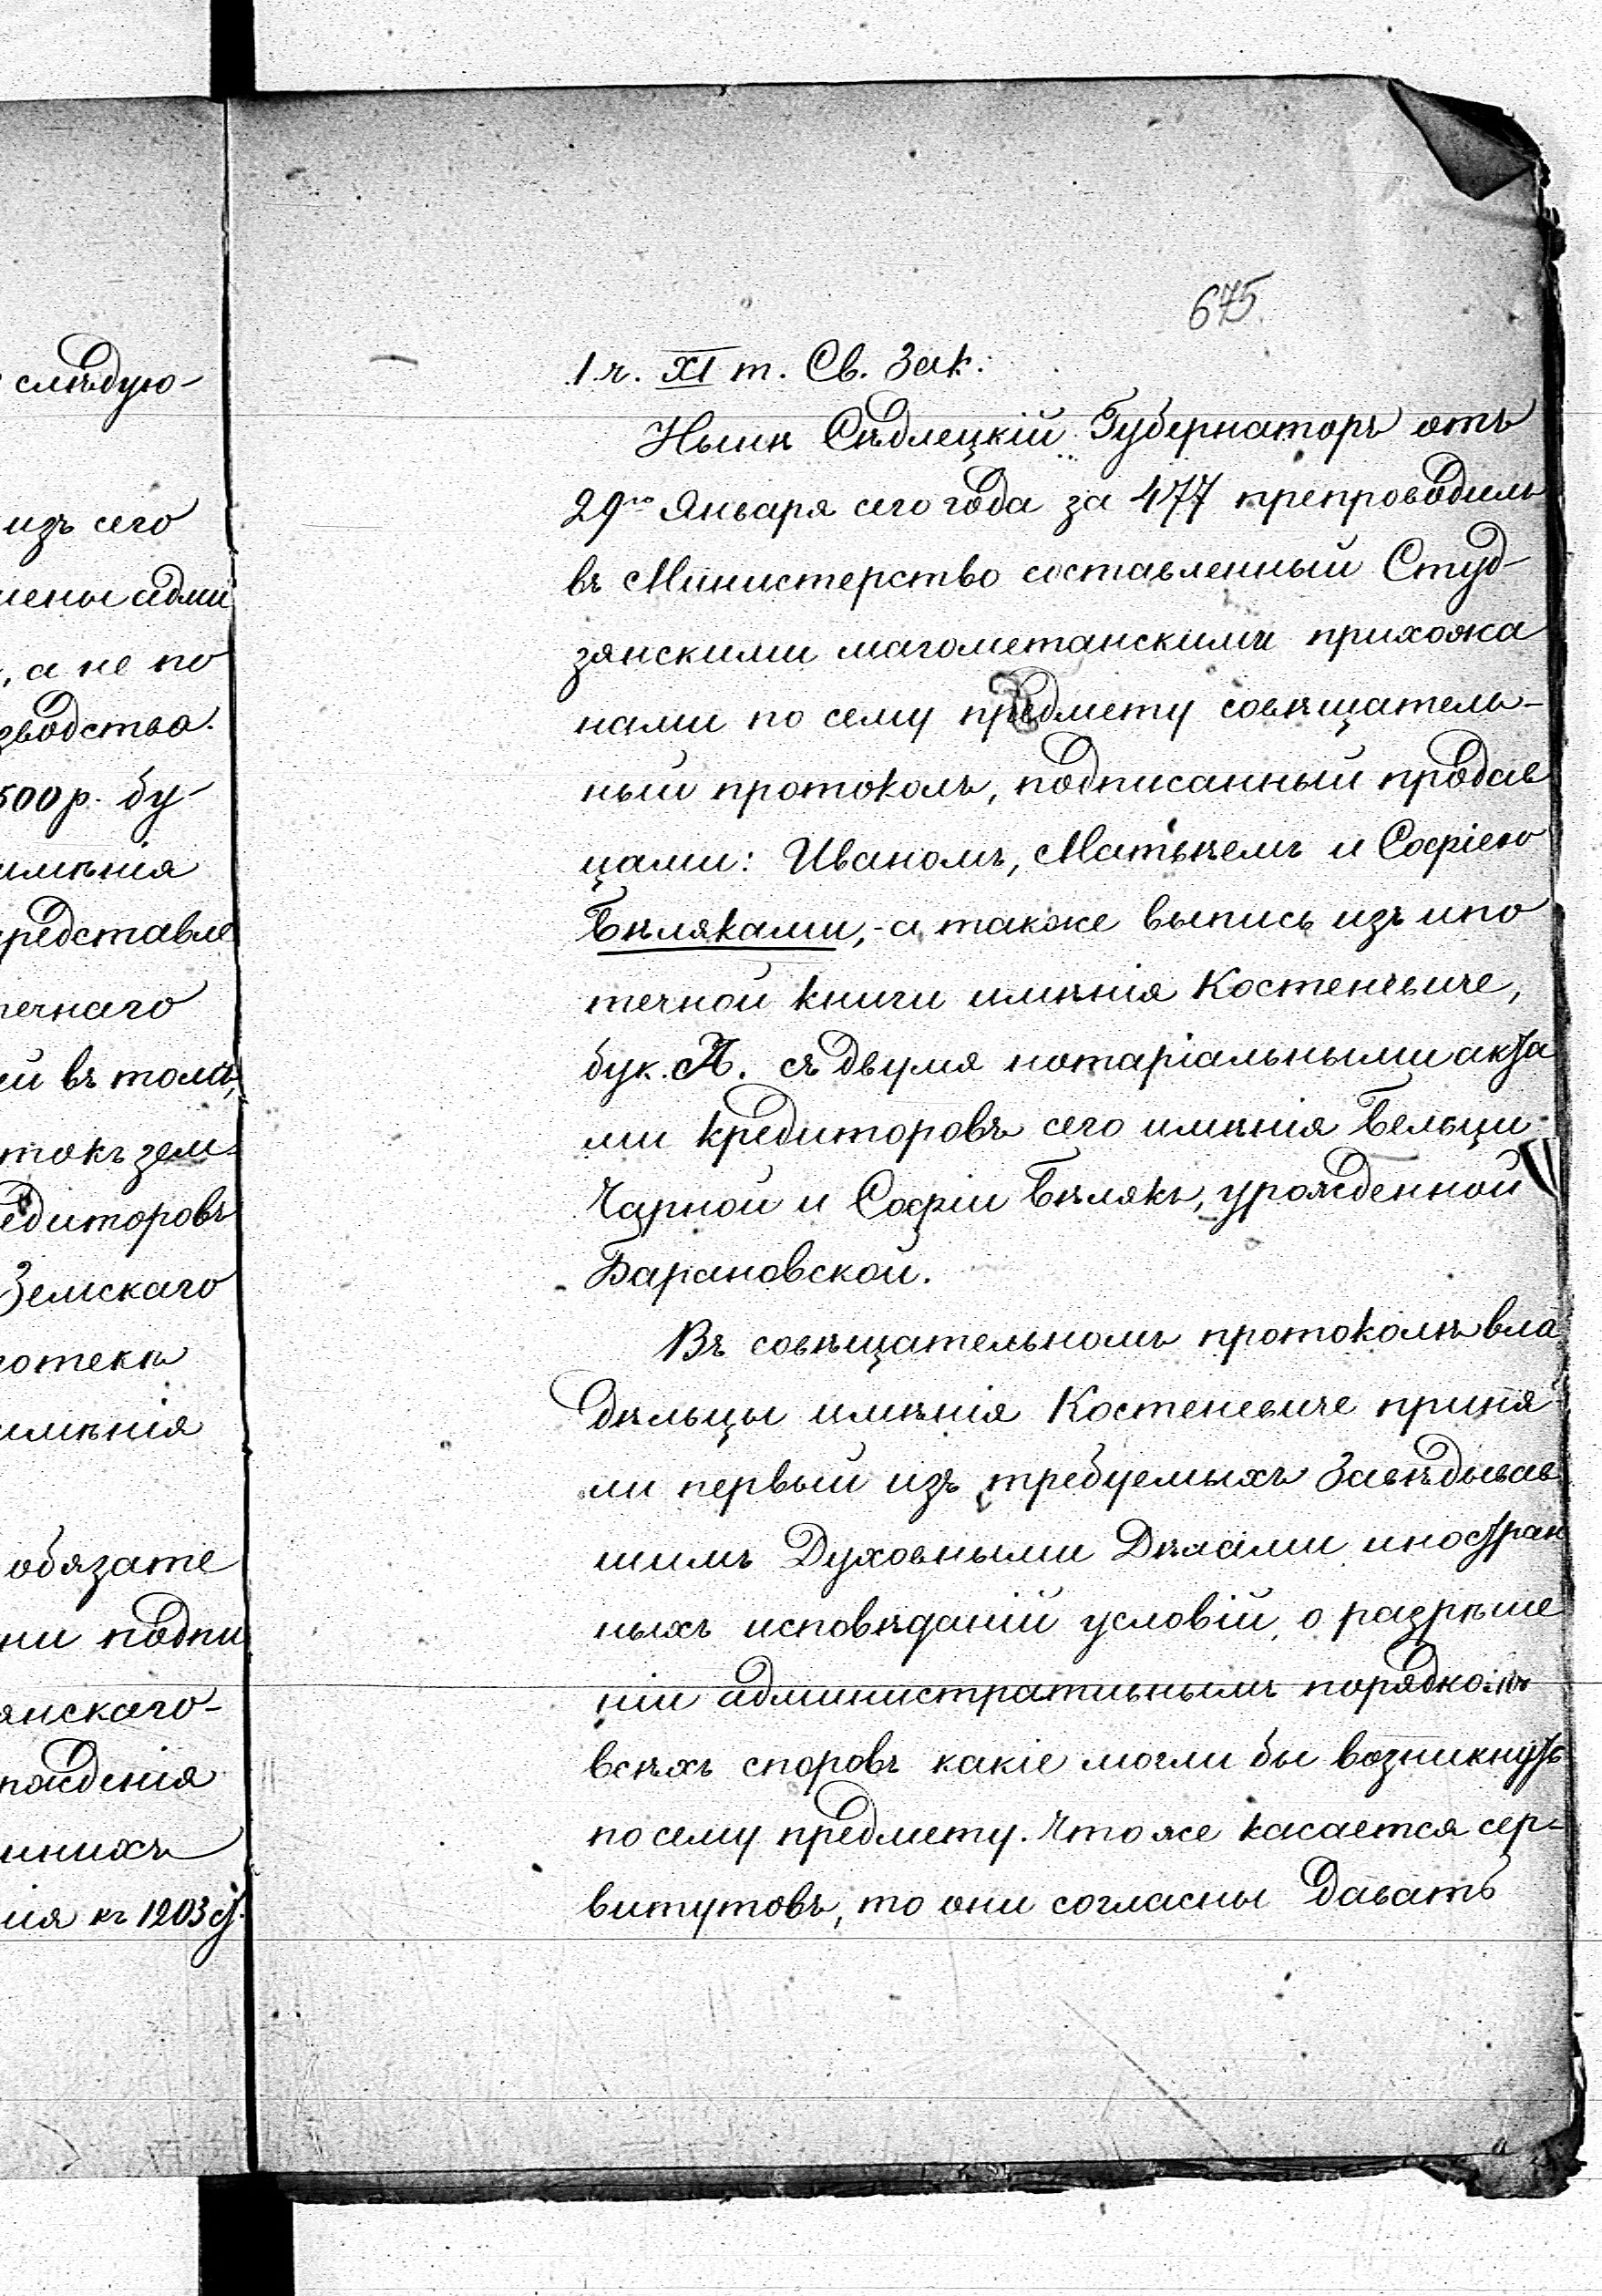 слѣдую-
изъ сего
а не по
зводства.
500 р. бу-
имѣнія
представле
течнаго
ей въ томъ,
токъ зем-
едиторовъ
Земскаго
потекѣ
имѣнія
обязате
ни подпи
янскаго-
хожденія
инихъ
ія къ 1203 ст.
675.
1 ч. XI т. Св. Зак.
Нынѣ Сѣдлецкій Губернаторъ отъ
29го Января сего года за 477 препроводилъ
въ Министерство составленный Студ-
зянскими магометанскими прихожа
нами по сему предмету совѣщатель-
ный протоколъ, подписанный продав
цами: Иваномъ, Матвѣемъ и Софіею
Бѣляками,- а также выпись изъ ипо
течной книги имѣнія Костеневиче,
бук. А. съ двумя нотаріальными акта
ми кредиторовъ сего имѣнія Бельци
Чарной и Софіи Бѣлякъ, урожденной
Барановской.
Въ совѣщательномъ протоколѣ вла
дѣльцы имѣнія Костеневиче приня
ли первый изъ требуемыхъ Завѣдывав
шимъ Духовными Дѣлами иностран
ныхъ исповѣданій условій, о разрѣше
ніи административнымъ порядкомъ
всѣхъ споровъ какіе могли бы возникнуть
по сему предмету. Что же касается сер-
витутовъ, то они согласны давать